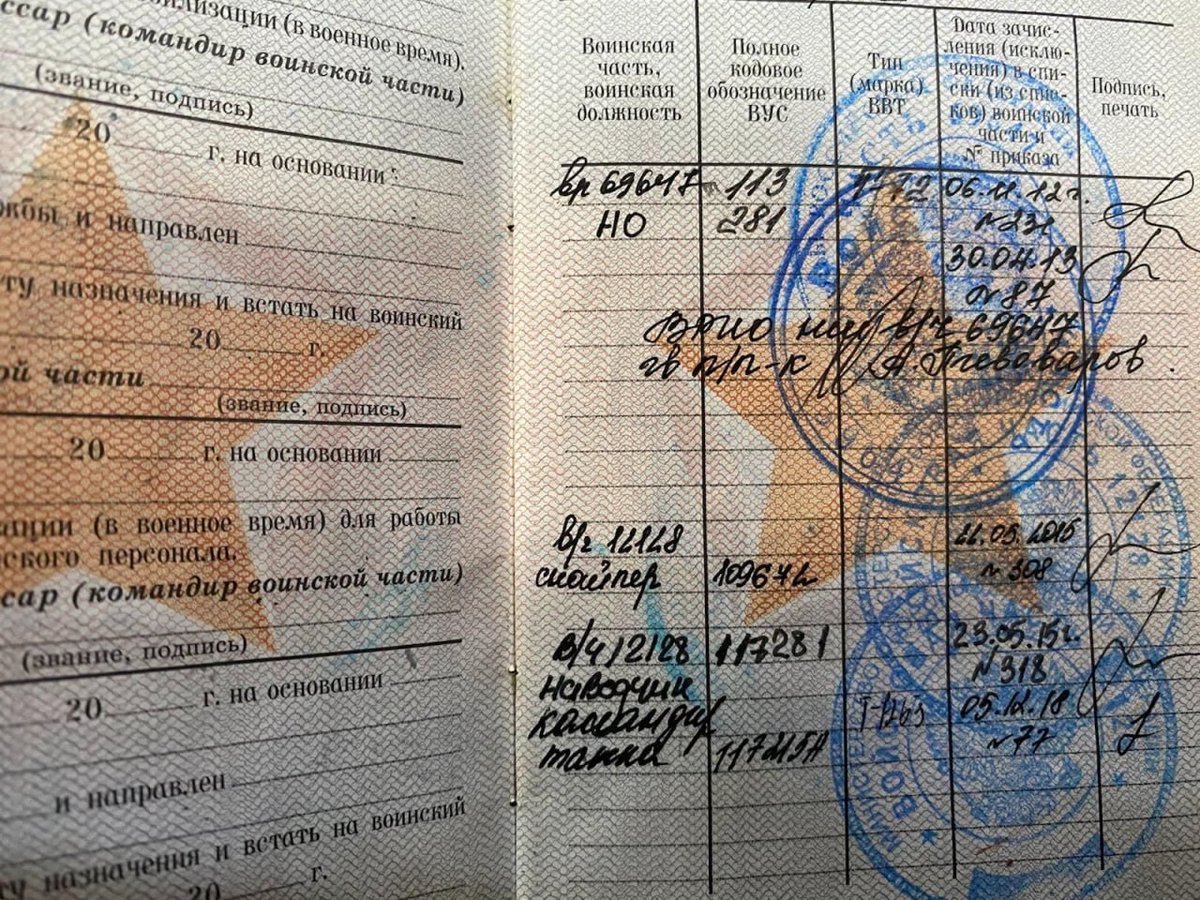 лизации (в военное время).
ссар (командир воинской части)
(звание, подпись)
20 г. на основании
жбы и направлен
ту назначения и встать на воинский
20 г.
ой части
(звание, подпись)
20 г. на основании
ации (в военное время) для работы
ского персонала.
сар (командир воинской части)
(звание, подпись)
20 г. на основании
и направлен
ту назначения и встать на воинский
20 г.
Воинская часть, воинская должность
Полное кодовое обозначение ВУС
Тип (марка) ВВТ
Дата зачис-
ления (исклю-
чения) в спи-
ски (из спис-
ков) воинской
части и
№ приказа
Подпись, печать
69647 113 06.11.12 г.
НО 281 №231
30.04.13
№87
в/ч 69647
гв п/п-к А. Пивоваров.
в/ч 12128
снайпер 109672 №308
в/ч 12128 117281 23.05.15 г.
наводчик №318
командир 05.12.18
танка №77